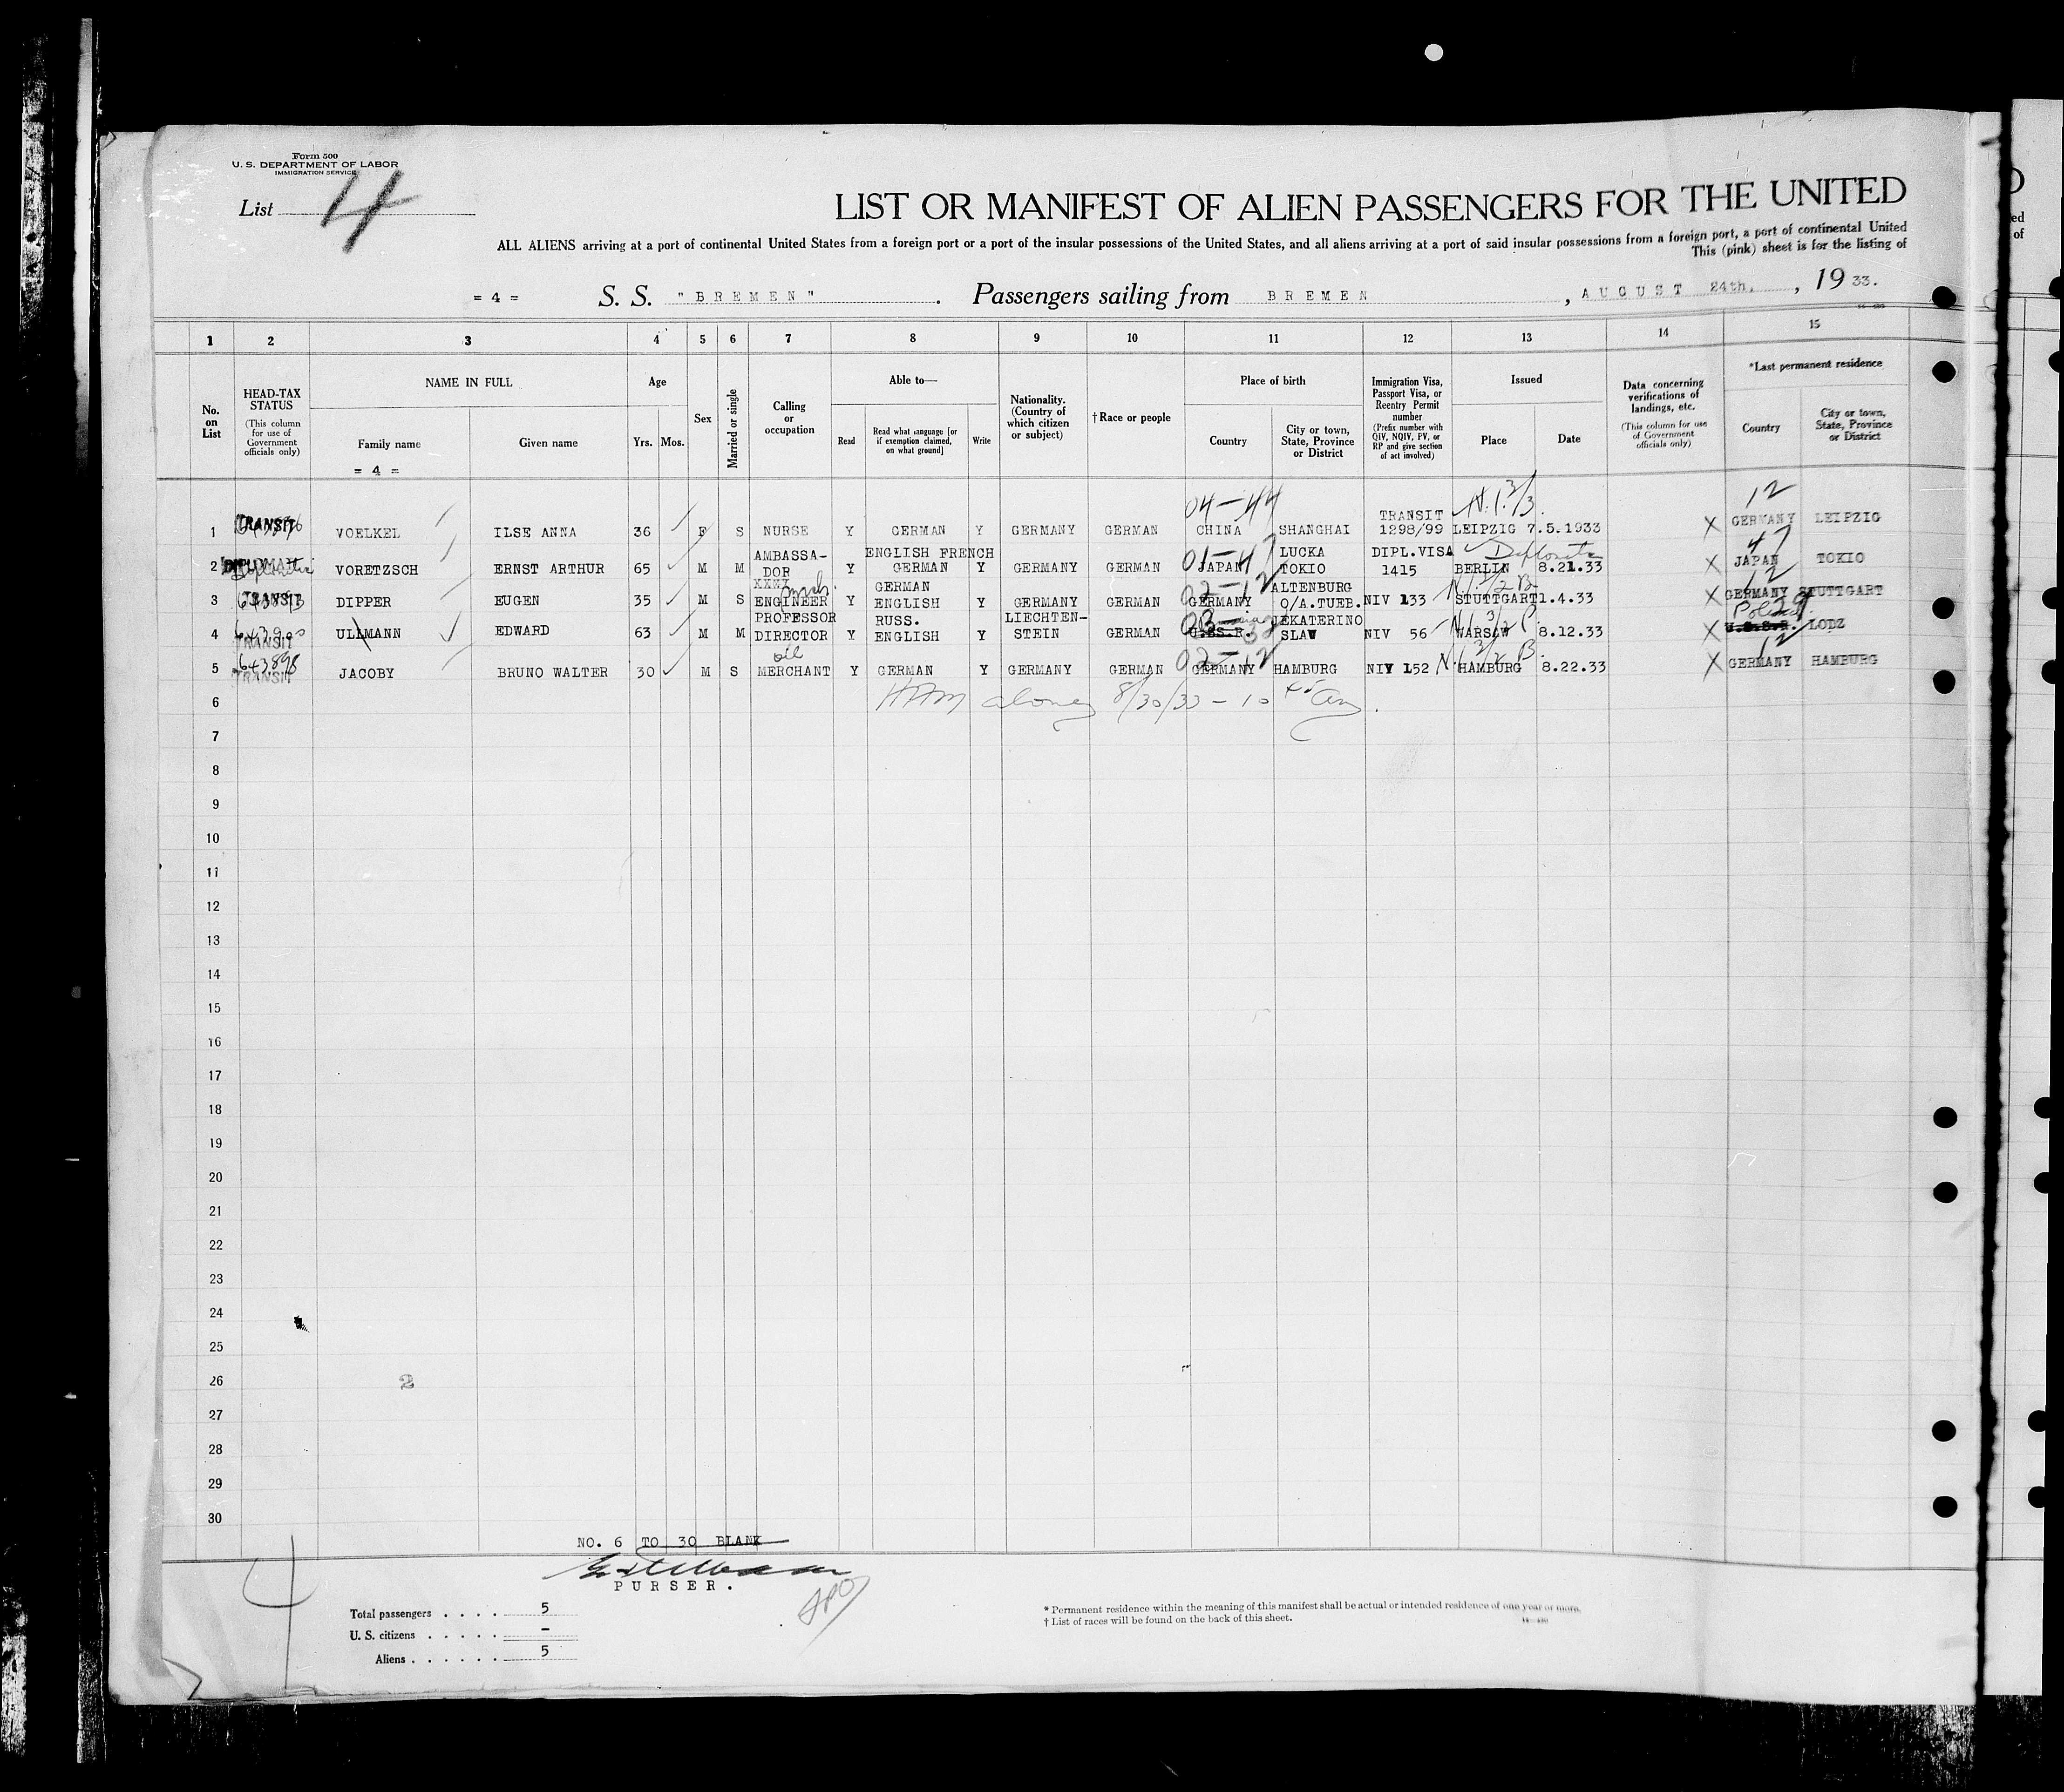 Form 500
U. S. DEPARTMENT OF LABOR
IMMIGRATION SERVICE
List 4
LIST OR MANIFEST OF ALIEN PASSENGERS FOR THE UNITED
ALL ALIENS arriving at a port of continental United States from a foreign port or a port of the insular possessions of the United States, and all aliens arriving at a port of said insular possessions from a foreign port, a port of continental United
This (pink) sheet is for the listing of
= 4 = S. S. "BREMEN". Passengers sailing from BREMEN, AUGUST 24th., 1933.
1 2 3 4 5 6 7 8 9 10 11 12 13 14 15
No. on List
HEAD-TAX STATUS (This column for use of Government officials only)
NAME IN FULL
Family name
Given name
= 4 =
Age
Yrs. Mos.
Sex
Married or single
Calling or occupation
Able to—
Read
Read what language [or if exemption claimed, on what ground]
Write
Nationality. (Country of which citizen or subject)
†Race or people
Place of birth
Country
City or town, State, Province or District
Immigration Visa, Passport Visa, or Reentry Permit number (Prefix number with QIV, NQIV, PV, or RP and give section of act involved)
Issued
Place
Date
Data concerning verifications of landings, etc. (This column for use of Government officials only)
*Last permanent residence
Country
City or town, State, Province or District
04-44 N.1.3/3. 12
1 TRANSIT VOELKEL ILSE ANNA 36 F S NURSE Y GERMAN Y GERMANY GERMAN CHINA SHANGHAI TRANSIT 1298/99 LEIPZIG 7.5.1933 X GERMANY LEIPZIG
2 DIPLOMAT VORETZSCH ERNST ARTHUR 65 M M AMBASSADOR Y ENGLISH FRENCH GERMAN Y GERMANY GERMAN 01-47 JAPAN LUCKA TOKIO DIPL.VISA 1415 BERLIN 8.21.33 X 47 JAPAN TOKIO
3 TRANSIT DIPPER EUGEN 35 M S XXXX ENGINEER Y GERMAN ENGLISH Y GERMANY GERMAN 02-12 GERMANY ALTENBURG O/A.TUEB. NIV 133 STUTTGART 1.4.33 X 12 GERMANY STUTTGART
4 TRANSIT ULLMANN EDWARD 63 M M PROFESSOR DIRECTOR Y RUSS. ENGLISH Y LIECHTEN- STEIN GERMAN U.SS.R. JEKATERINO SLAW NIV 56 WARSAW 8.12.33 X U.S.S.R. Poland LODZ
5 643898 TRANSIT JACOBY BRUNO WALTER 30 M S oil MERCHANT Y GERMAN Y GERMANY GERMAN 02-12 GERMANY HAMBURG NIV 152 HAMBURG 8.22.33 X 12 GERMANY HAMBURG
6 8/30/33 - 10
7
8
9
10
11
12
13
14
15
16
17
18
19
20
21
22
23
24
25
26 2
27
28
29
30
NO. 6 TO 30 BLANK
PURSER.
4
Total passengers . . . . 5
U. S. citizens . . . . . -
Aliens . . . . . . 5
* Permanent residence within the meaning of this manifest shall be actual or intended residence of one year or more.
† List of races will be found on the back of this sheet.